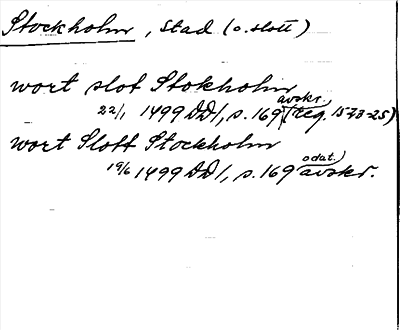 Stockholm, stad (o. slott)
wort slot Stokholm
22/1 1499 DD1, s. 169 avskr. (reg. 1523-25)
wort Slott Stockholm
19/6 1499 DD1, s. 169 odat.) avskr.